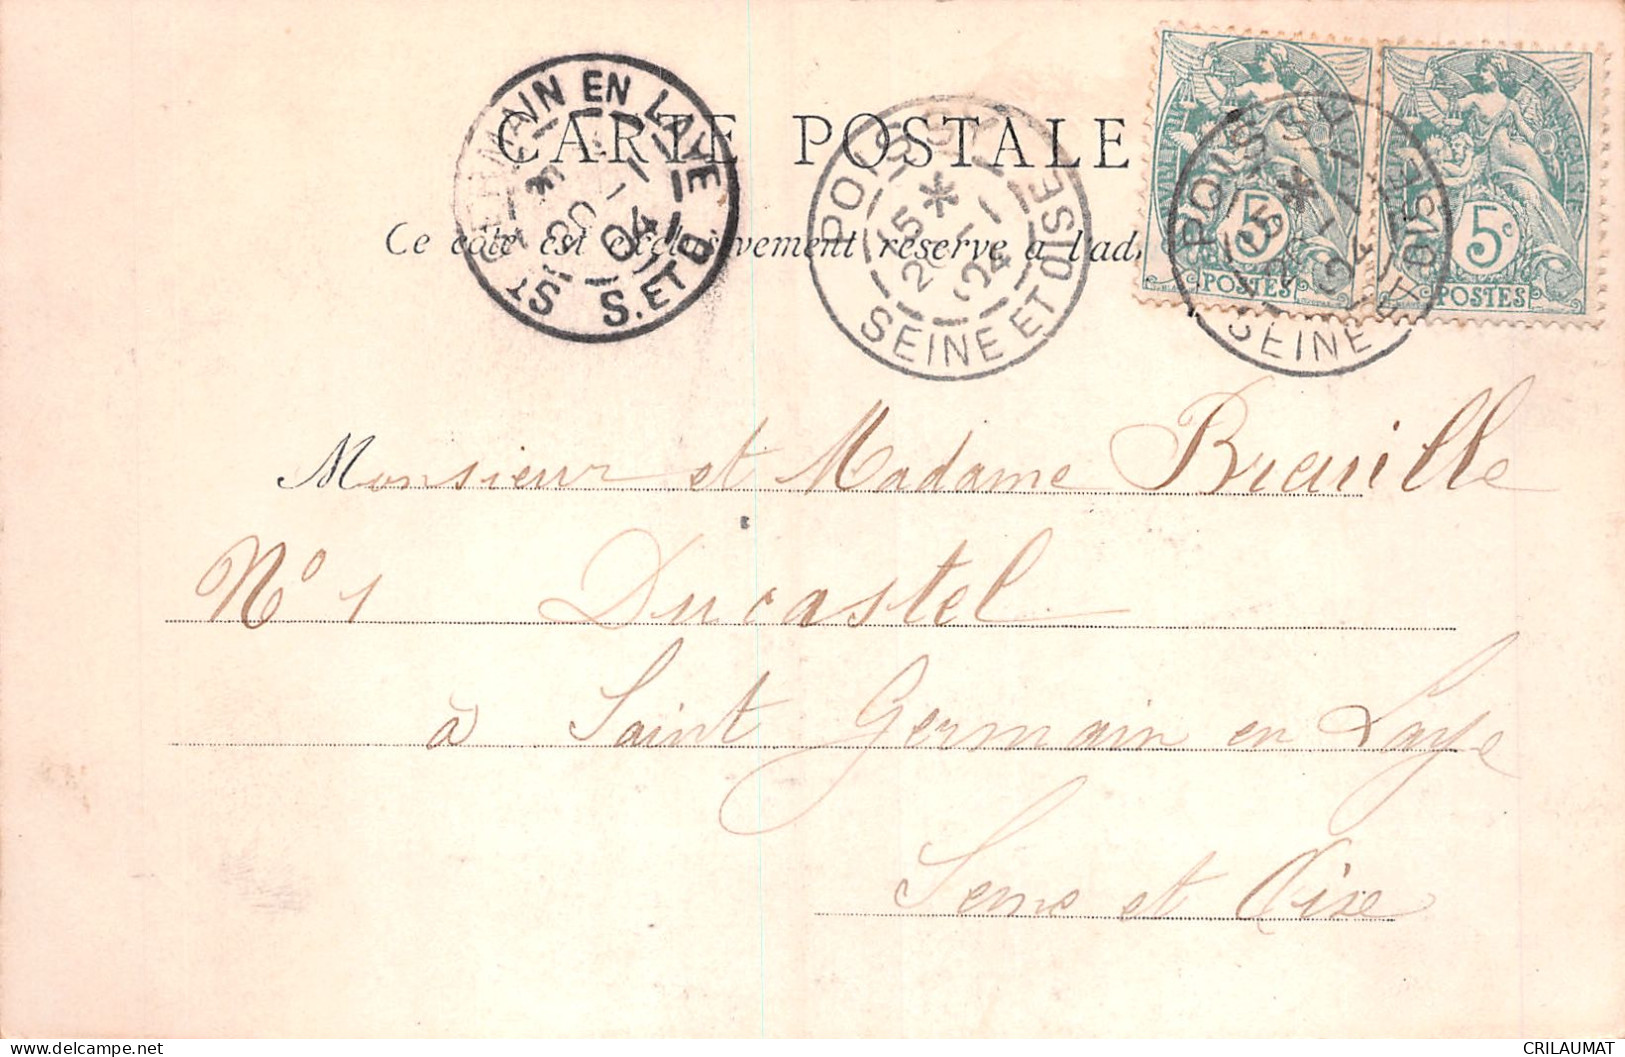 CARTE POSTALE
Ce côté est exclusivement réservé à l'ad
ST GERMAIN EN LAYE
20 -1
04
S. ET O.
POISSY
15 *
20 -1
04
SEINE ET OISE
POISSY
15 *
04
SEINE ET OISE
RÉPUBLIQUE FRANÇAISE
5c
POSTES
RÉPUBLIQUE FRANÇAISE
5c
POSTES
Monsieur et Madame Breuille
N° 1 Ducastel
à Saint Germain en Laye
Seine et Oise
CRILAUMAT